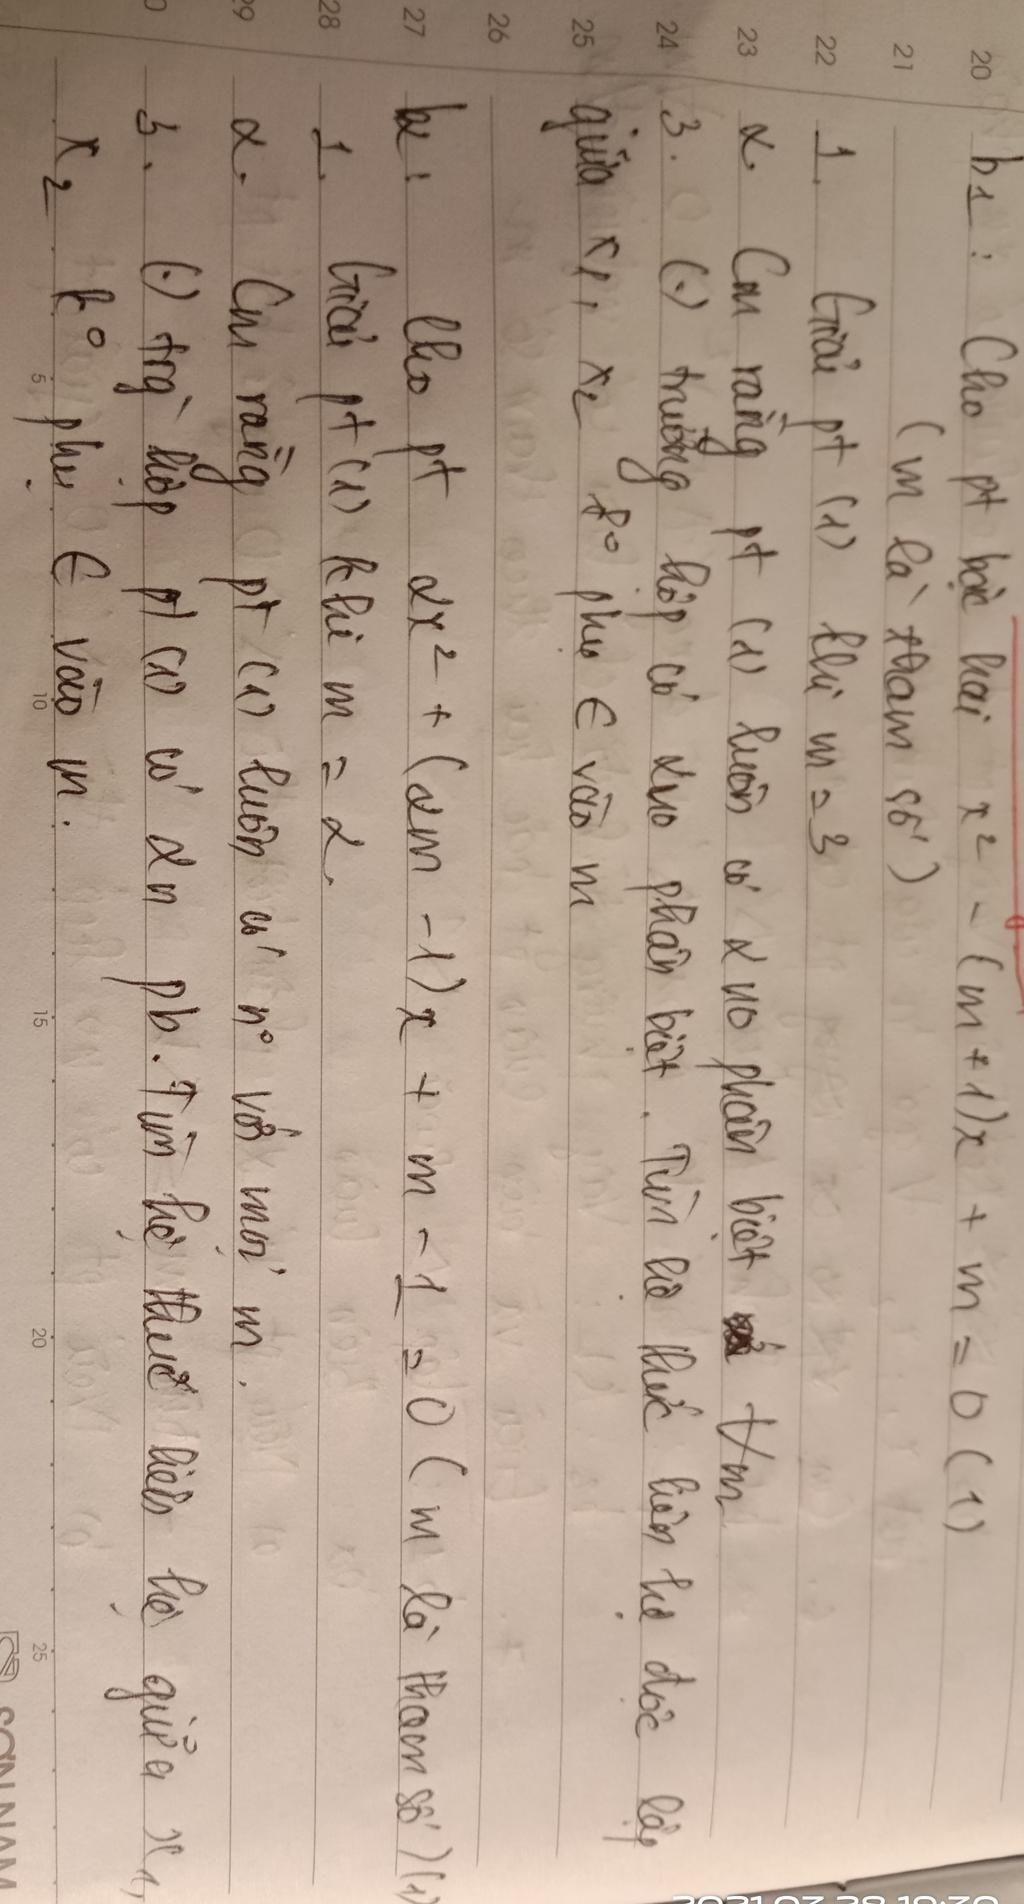 b1: Cho pt bậc hai x² - (m+1)x + m = 0 (1)
(m là tham số)
1. Giải pt (1) khi m = 3
2. Cm rằng pt (1) luôn có 2 no phân biệt ∀m
3. (.) trường hợp có 2no phân biệt. Tìm hệ thức liên hệ độc lập
giữa x1, x2 k° phụ ∈ vào m
b2: Cho pt 2x² + (2m - 1)x + m - 1 = 0 (m là tham số) (1)
1. Giải pt (1) khi m = 2.
2. Cm rằng pt (1) luôn có n° với mọi m.
3. (.) trg` hợp pt (1) có 2n pb. Tìm hệ thức liên hệ giữa x1,
x2 k° phụ ∈ vào m.
20
21
22
23
24
25
26
27
28
29
0
5
10
15
20
25
SƠN NAM
2021.03.28 19:30